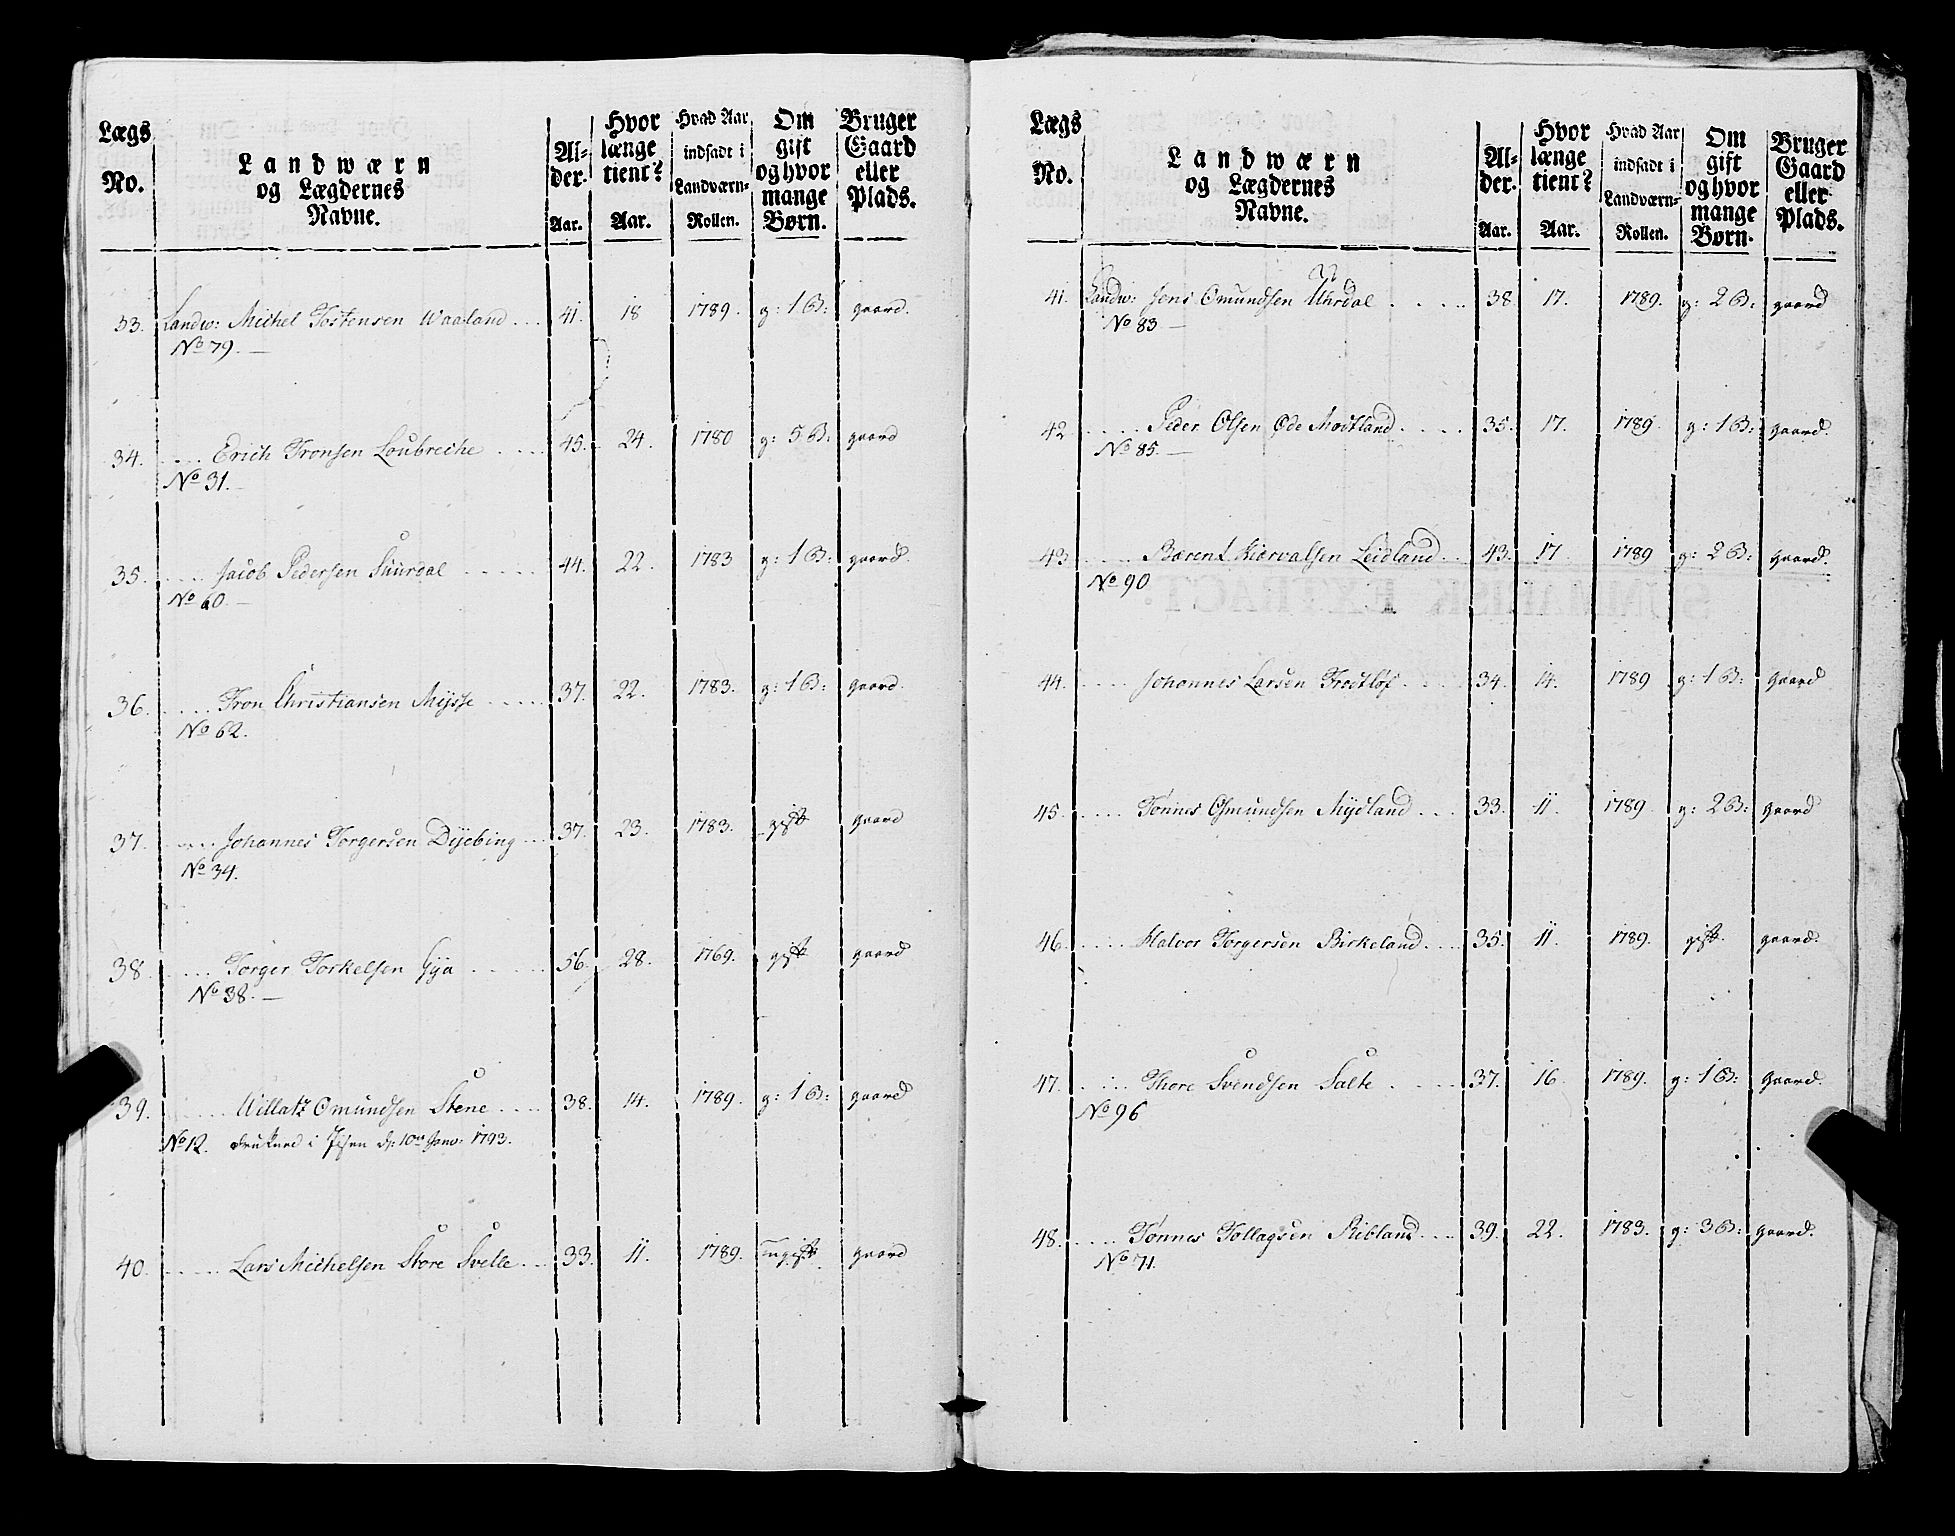 Lægs No. Landwærn og Lægdernes Navne. Alder. Aar. Hvor længe tient? Aar. Hvad Aar indsadt i Landværn-Rollen. Om gift og hvor mange Børn. Bruger Gaard eller Plads.
33. Landw: Michel Tostensen Waaland 41. 18 1789. g: 1 B: gaard.
No 79.
34. Erich Tronsen Loubreche 45. 24. 1780 g: 5 B: gaard
No 31.
35. Jacob Pedersen Skurdal 44. 22. 1783 g: 1 B: gaard.
No 60.
36. Tron Christiansen Mysse 37. 22. 1783. g: 1 B: gaard.
No 62.
37. Johannes Torgersen Dyebing 37. 23. 1783. gift gaard
No 34.
38. Torger Torkelsen Gya 56. 28. 1769. gift gaard
No 38.
39. Willatz Omundsen Stene 38. 14. 1789. g: 1 B: gaard
No 12. drukned i d: 10de Janv: 1793.
40. Lars Michelsen Store Svelle 33. 11. 1789. ungift gaard
Lægs No. Landwærn og Lægdernes Navne. Alder. Aar. Hvor længe tient? Aar. Hvad Aar indsadt i Landværn-Rollen. Om gift og hvor mange Børn. Bruger Gaard eller Plads.
41. Landw: Jens Omundsen Uhrdal 38 17. 1789. g: 2 B: gaard
No 83
42. Peder Olsen Øde Modtland 35. 17. 1789. g: 1 B: gaard.
No 85.
43. Bærent Kiærvalsen Leidland 43. 17 1789 g: 2 B: gaard.
No 90
44. Johannes Larsen Tredtlof 34. 14. 1789 g: 1 B: gaard
45. Tønnes Osmundsen Mydland 33. 11. 1789. g: 2 B: gaard
46. Halvor Torgersen Birkeland 35. 11. 1789. gift. gaard.
47. Thore Svendsen Salte 37. 16 1789. g: 1 B: gaard.
No 96
48. Tønnes Tollagsen Ribland 39. 22. 1783. g: 3 B: gaard.
No 71.